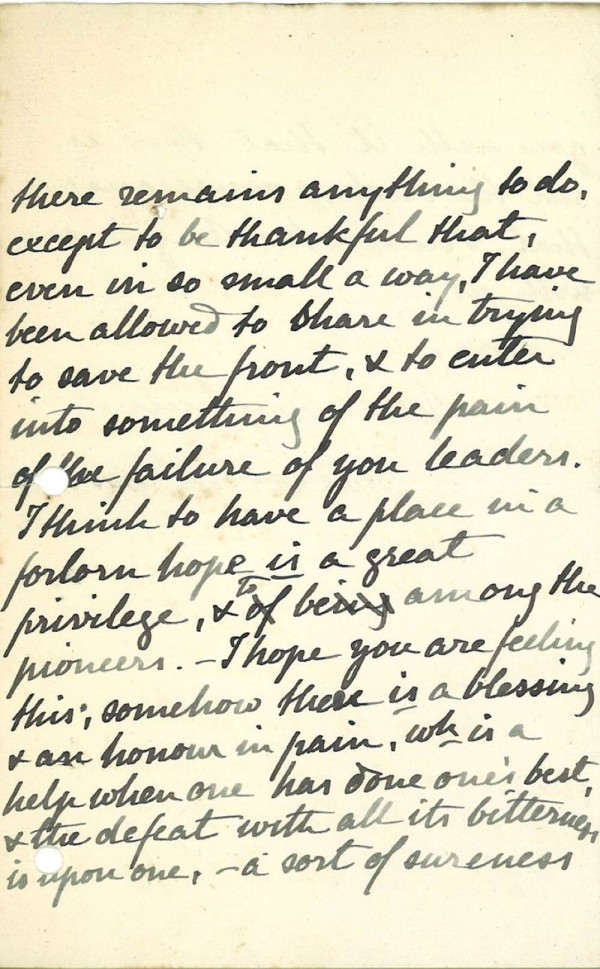 there remains anything to do,
except to be thankful that,
even in so small a way, I have
been allowed to share in trying
to save the front, & to enter
into something of the pain
of the failure of you leaders.
I think to have a place in a
forlorn hope is a great
privilege, & to be among the
pioneers. – I hope you are feeling
this; somehow there is a blessing
& an honour in pain, wh is a
help when one has done one's best,
& the defeat with all its bitterness
is upon one, – a sort of sureness